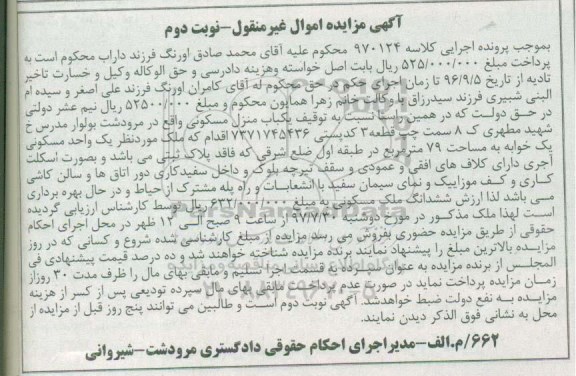 آگهی مزایده اموال غیرمنقول-نوبت دوم
بموجب پرونده اجرایی کلاسه ۹۷۰۱۲۴ محکوم علیه آقای محمد صادق اورنگ فرزند داراب محکوم است به
پرداخت مبلغ ۵۲۵/۰۰۰/۰۰۰ ریال بابت اصل خواسته وهزینه دادرسی و حق الوکاله وکیل و خسارت تاخیر
تادیه از تاریخ ۹۶/۹/۵ تا زمان اجرای حکم در حق محکوم له آقای کامران اورنگ فرزند علی اصغر و سیده ام
البنی شبیری فرزند سیدرزاق باوکالت خانم زهرا همایون محکوم و مبلغ ۵۲۵۰۰/۰۰۰ ریال نیم عشر دولتی
در حق دولت که در همین راستا نسبت به توقیف یکباب منزل مسکونی واقع در مرودشت بولوار مدرس خ
شهید مطهری ک ۸ سمت چپ قطعه۳ کدپستی ۷۳۷۱۷۴۵۴۳۶ اقدام که ملک موردنظر یک واحد مسکونی
یک خوابه به مساحت ۷۹ مترمربع در طبقه اول ضلع شرقی که فاقد پلاک ثبتی می باشد و بصورت اسکلت
آجری دارای کلاف های افقی و عمودی و سقف تیرچه بلوک و داخل سفیدکاری دور اتاق ها و سالن کاشی
کاری و کف موزاییک و نمای سیمان سفید با انشعابات و راه پله مشترک از حیاط و در حال بهره برداری
می باشد لذا ارزش ششدانگ ملک مسکونی به مبلغ ۶۳۲/۰۰۰/۰۰۰ ریال توسط کارشناس ارزیابی گردیده
است لهذا ملک مذکور در مورخ دوشنبه ۹۷/۷/۳۰ از ساعت ۱۰ صبح الی ۱۲ ظهر در محل اجرای احکام
حقوقی از طریق مزایده حضوری بفروش می رسد مزایده از مبلغ کارشناسی شده شروع و کسانی که در روز
مزایده بالاترین مبلغ را پیشنهاد نمایند برنده مزایده شناخته خواهند شد و ده درصد قیمت پیشنهادی فی
المجلس از برنده مزایده به عنوان سپرده به قسمت اجرا تسلیم و مابقی بهای مال را ظرف مدت ۳۰ روزاز
زمان مزایده پرداخت نماید در صورت عدم پرداخت مابقی بهای مال سپرده تودیعی پس از کسر از هزینه
مزایده به نفع دولت ضبط خواهدشد آگهی نوبت دوم است و طالبین می توانند پنج روز قبل از مزایده از
محل به نشانی فوق الذکر دیدن نمایند.
۶۶۲/م.الف-مدیراجرای احکام حقوقی دادگستری مرودشت-شیروانی